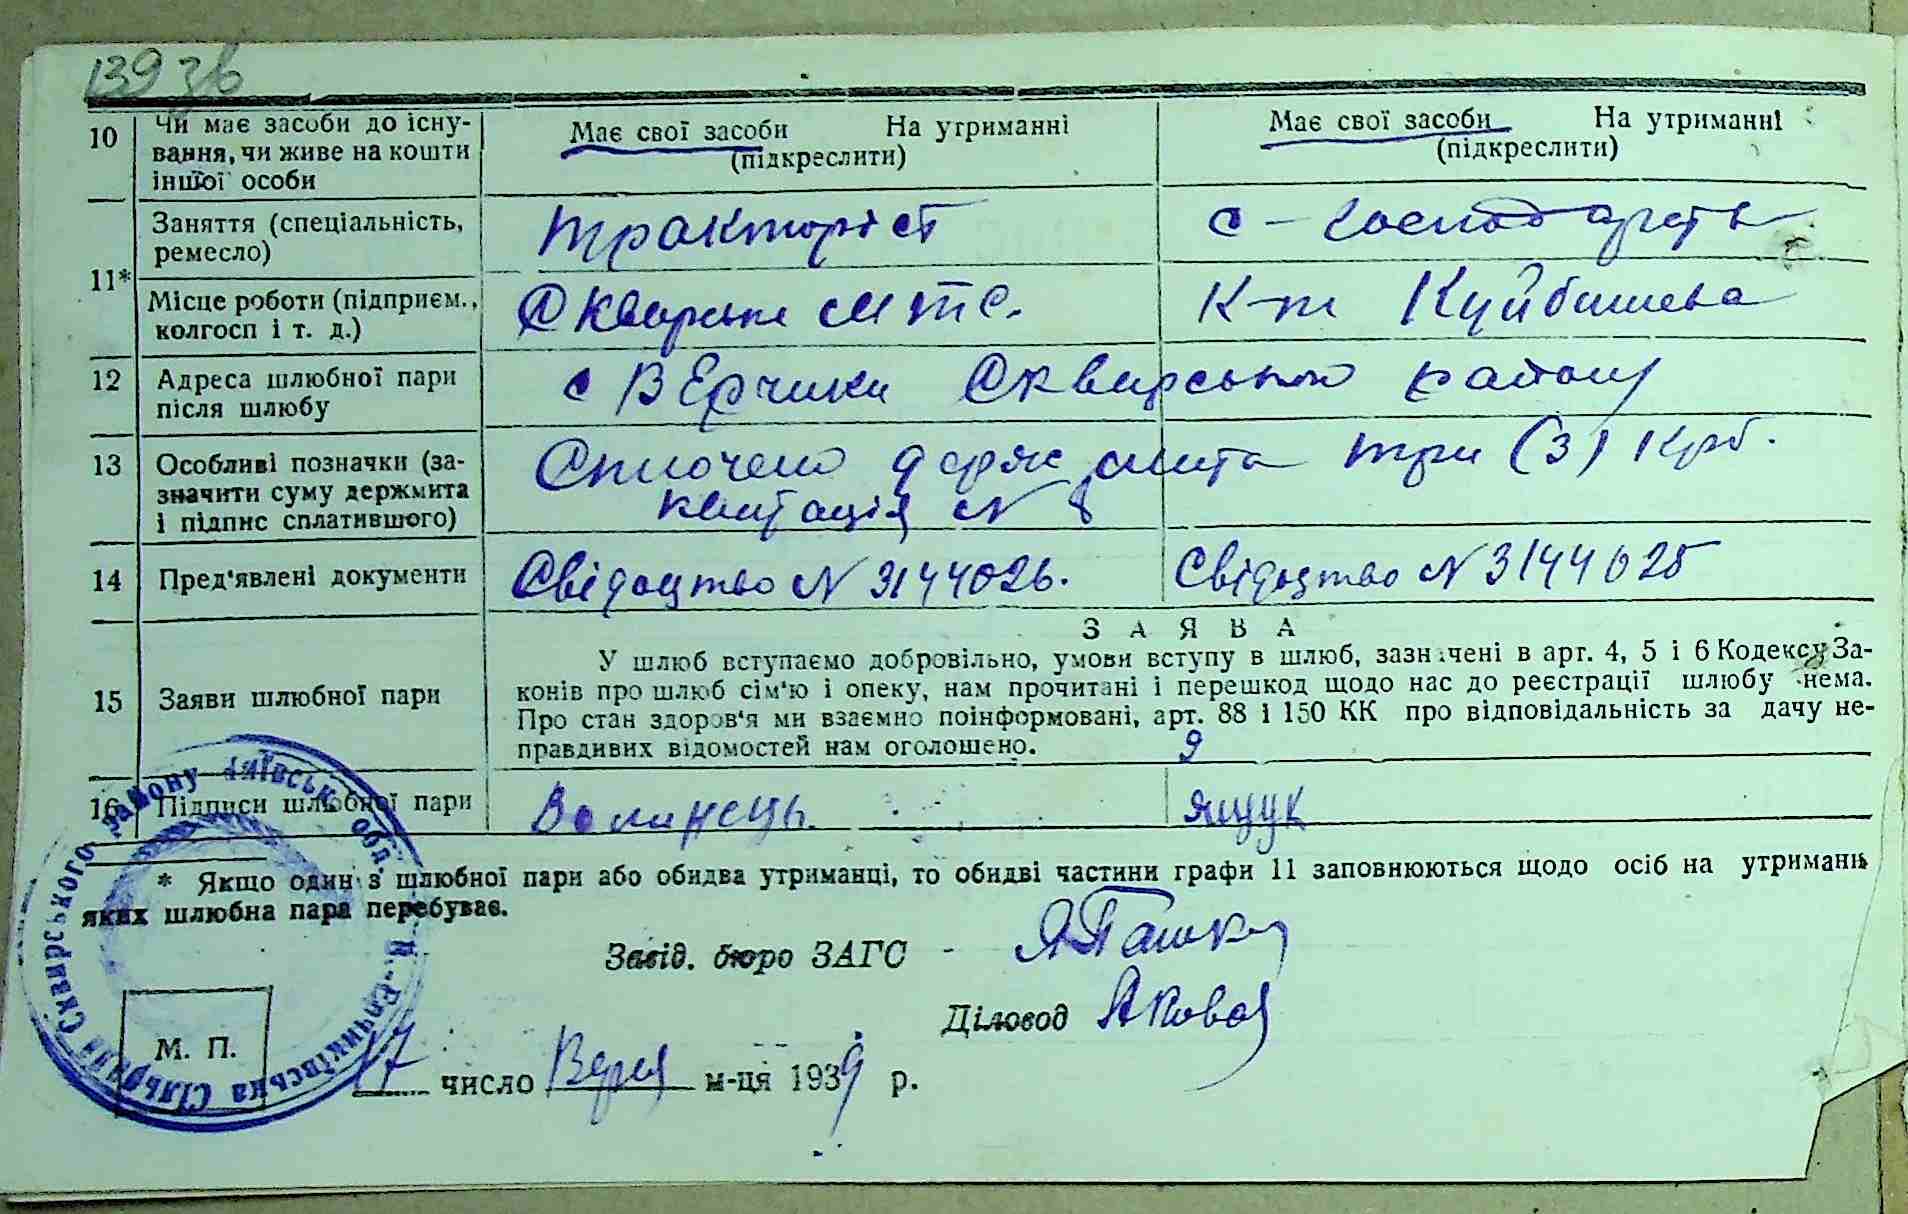 139 зв
10 Чи має засоби до існу- Має свої засоби На утриманні Має свої засоби На утриманні
вання, чи живе на кошти (підкреслити) (підкреслити)
іншої особи
11* Заняття (спеціальність, тракторіст с-господарств
ремесло)
Місце роботи (підприєм., Сквирське МТС. К-т Куйбишева
колгосп і т. д.)
12 Адреса шлюбної пари с В Єрчики Сквирського району
після шлюбу
13 Особливі позначки (за- Сплочено держ мита три (3) крб.
значити суму держмита квитація N 8
і підпис сплатившого)
14 Пред'явлені документи Свідоцтво N 3144026. Свідоцтво N 3144025
ЗАЯВА
15 Заяви шлюбної пари У шлюб вступаємо добровільно, умови вступу в шлюб, зазначені в арт. 4, 5 і 6 Кодексу За-
конів про шлюб сім'ю і опеку, нам прочитані і перешкод щодо нас до реєстрації шлюбу нема.
Про стан здоров'я ми взаємно поінформовані, арт. 88 і 150 КК про відповідальність за дачу не-
правдивих відомостей нам оголошено.
16 Підписи шлюбної пари Волинець. Ящук
* Якщо один з шлюбної пари або обидва утриманці, то обидві частини графи 11 заповнюються щодо осіб на утриманні
яких шлюбна пара перебуває.
Завід. бюро ЗАГС
Діловод
М. П.
17 число Верес м-ця 1939 р.
Єрчиківська Сільрада Сквирського району Київськ. обл.